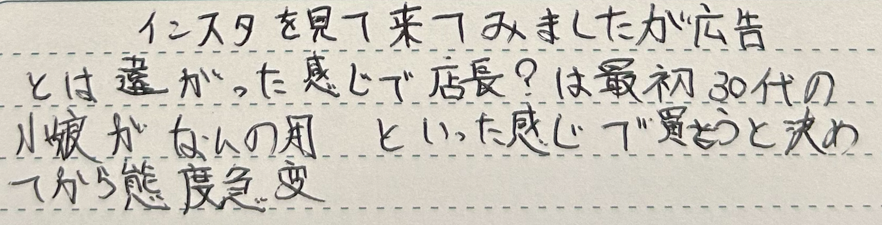 インスタを見て来てみましたが広告
とは違がった感じで店長?は最初30代の
小娘がなんの用 といった感じで買おうと決め
てから態度急変